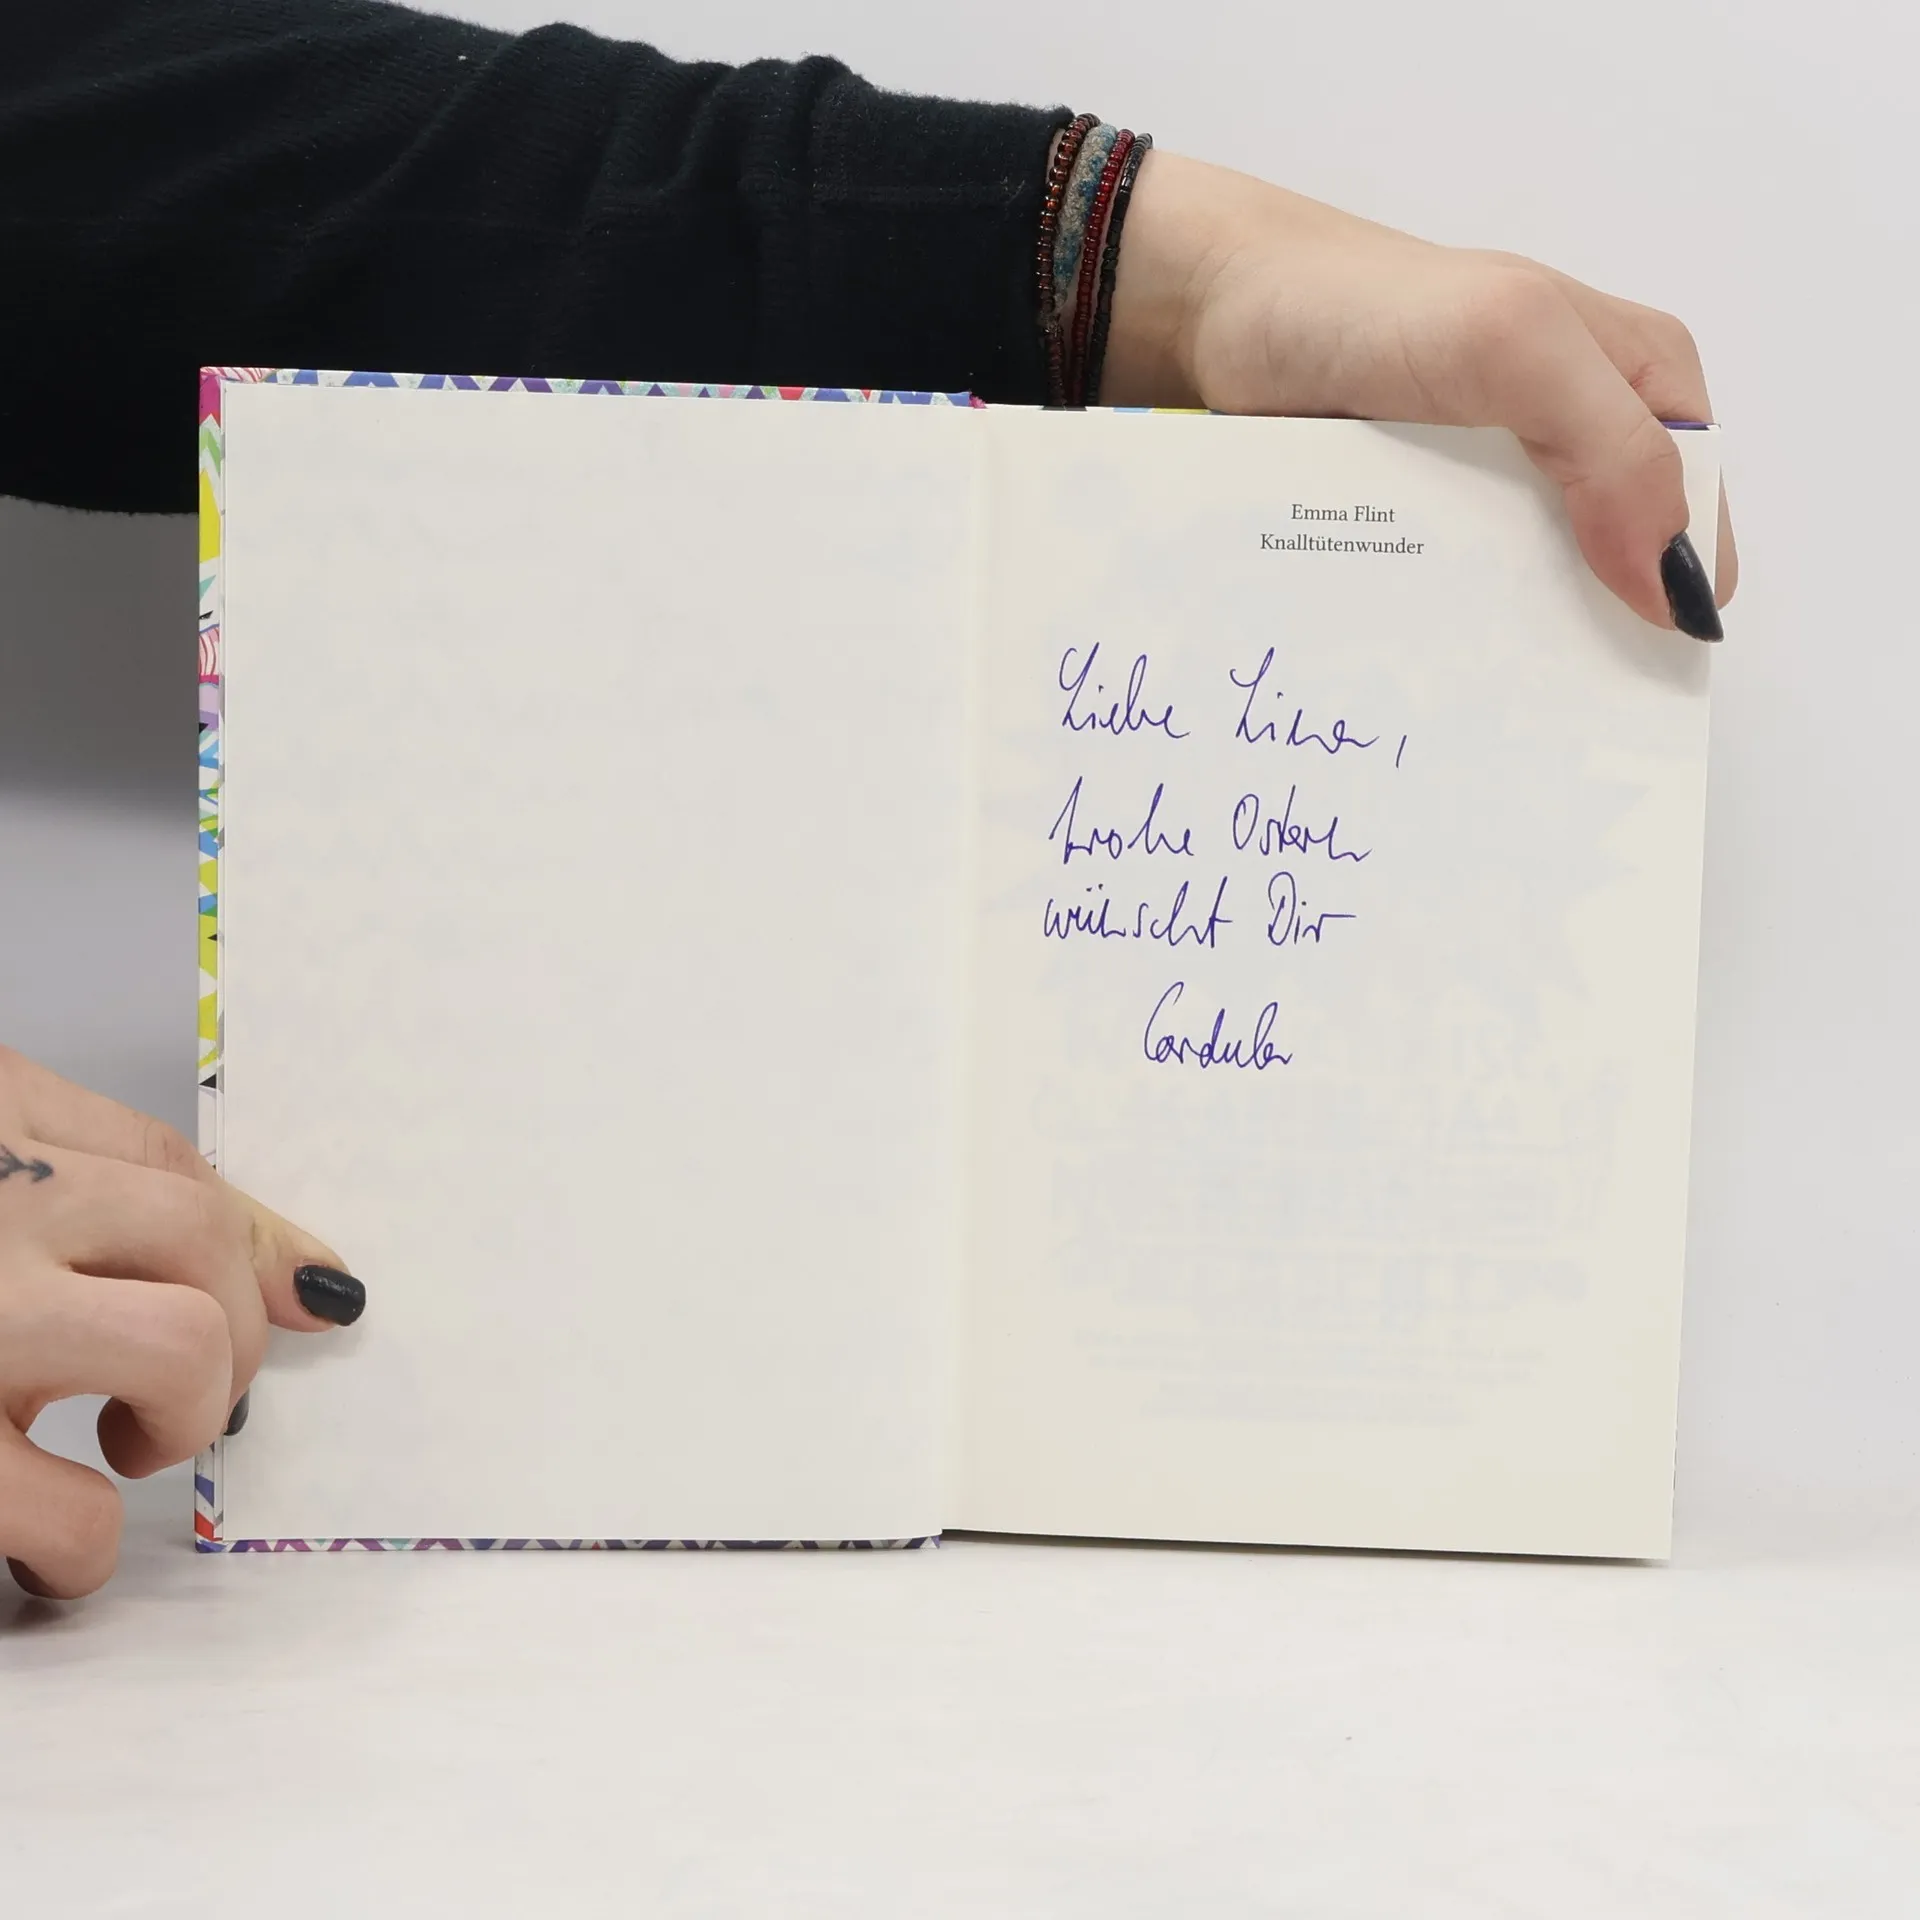 Emma Flint
Knalltütenwunder
Liebe
frohe Ostern
wünscht Dir
Cordula